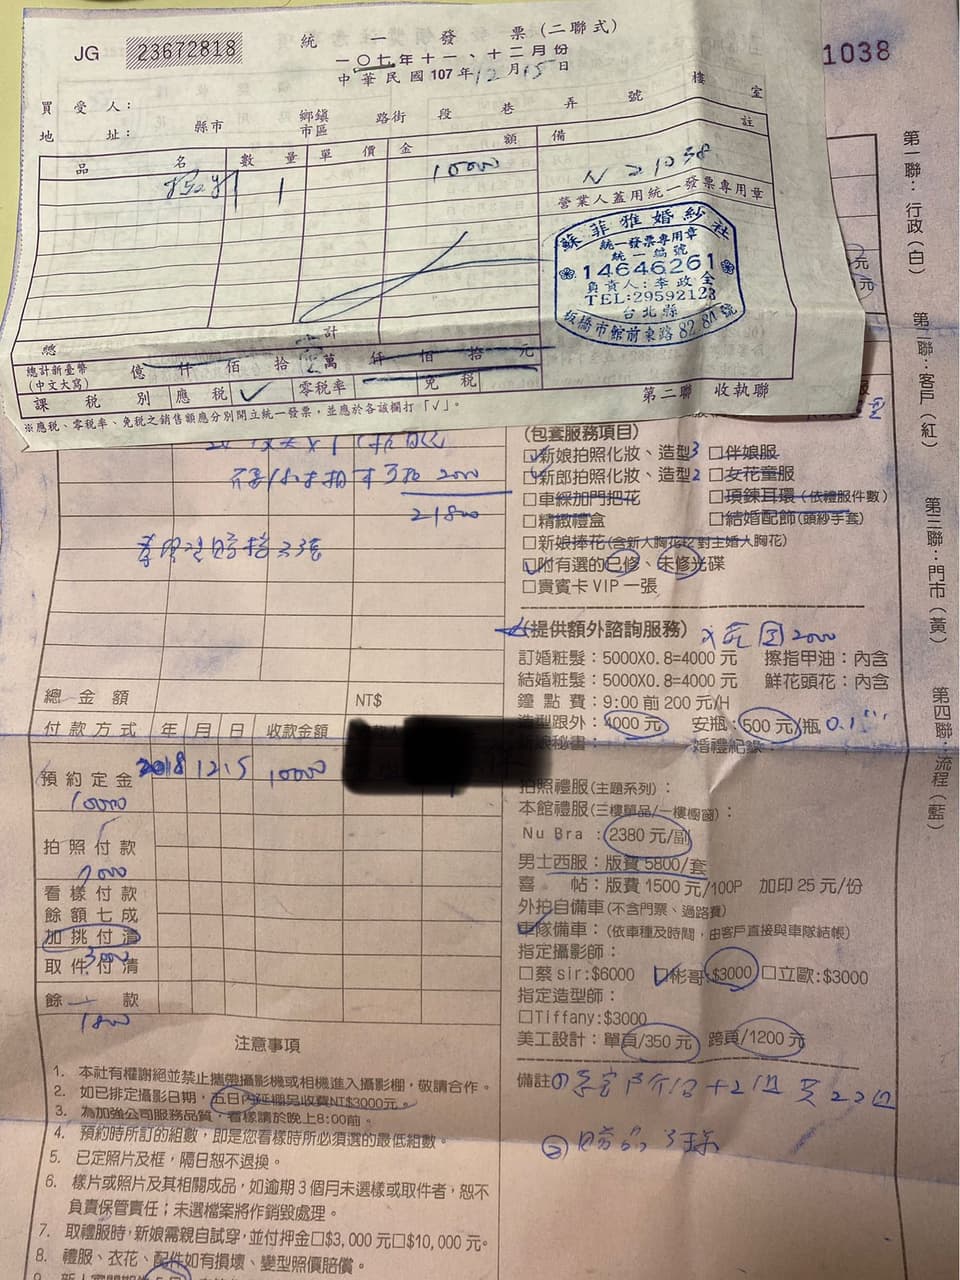 統一發票(二聯式)
JG 23672818
一〇七年十一、十二月份
中華民國107年12月15日
1038
買受人：
地址： 縣市 鄉鎮市區 路街 段 巷 弄 號 樓 室
品名 數量 單價 金額 備註
1 10000 N 21038
營業人蓋用統一發票專用章
蘇菲雅婚紗社
統一發票專用章
統一編號
14646261
負責人:李政全
TEL:29592123
台北縣
板橋市館前東路82.84號
總計
總計新臺幣(中文大寫) 億仟佰拾萬仟佰拾元
課稅別 應稅 ✓ 零稅率 免稅
第二聯 收執聯
※應稅、零稅率、免稅之銷售額應分別開立統一發票，並應於各該欄打「✓」。
第一聯：行政(白)
第二聯：客戶(紅)
第三聯：門市(黃)
第四聯：流程(藍)
元
元
2000
21800
(包套服務項目)
□新娘拍照化妝、造型3 □伴娘服
□新郎拍照化妝、造型2 □女花童服
□車綵加門把花 □項鍊耳環(依禮服件數)
□精緻禮盒 □結婚配飾(頭紗手套)
□新娘捧花(含新人胸花x2對主婚人胸花)
□附有選的已修、未修光碟
□貴賓卡VIP一張
(提供額外諮詢服務) 2000
訂婚粧髮：5000X0.8=4000元 擦指甲油：內含
結婚粧髮：5000X0.8=4000元 鮮花頭花：內含
鐘點費：9:00前200元/H
造型跟外：4000元 安瓶：500元/瓶
新娘秘書： 婚禮紀錄
總金額 NT$
付款方式 年 月 日 收款金額
預約定金 2018 12 15 10000
10000
拍照付款
7000
看樣付款
餘額七成
加挑付清
3000
取件付清
餘款
1800
拍照禮服(主題系列)：
本館禮服(三樓單品/一樓櫥窗)：
Nu Bra：2380元/副
男士西服：版費5800/套
喜帖：版費1500元/100P 加印25元/份
外拍自備車(不含門票、過路費)
車隊備車：(依車種及時間，由客戶直接與車隊結帳)
指定攝影師：
□蔡sir:$6000 □彬哥:$3000 □立歐:$3000
指定造型師：
□Tiffany:$3000
美工設計：單頁/350元 跨頁/1200元
注意事項
1. 本社有權謝絕並禁止攜帶攝影機或相機進入攝影棚，敬請合作。
2. 如已排定攝影日期，五日內延棚另收費NT$3000元。
3. 為加強公司服務品質，看樣請於晚上8:00前。
4. 預約時所訂的組數，即是您看樣時所必須選的最低組數。
5. 已定照片及框，隔日恕不退換。
6. 樣片或照片及其相關成品，如逾期3個月未選樣或取件者，恕不
負責保管責任；未選檔案將作銷毀處理。
7. 取禮服時，新娘需親自試穿，並付押金□$3,000元□$10,000元。
8. 禮服、衣花、配件如有損壞、變型照價賠償。
備註